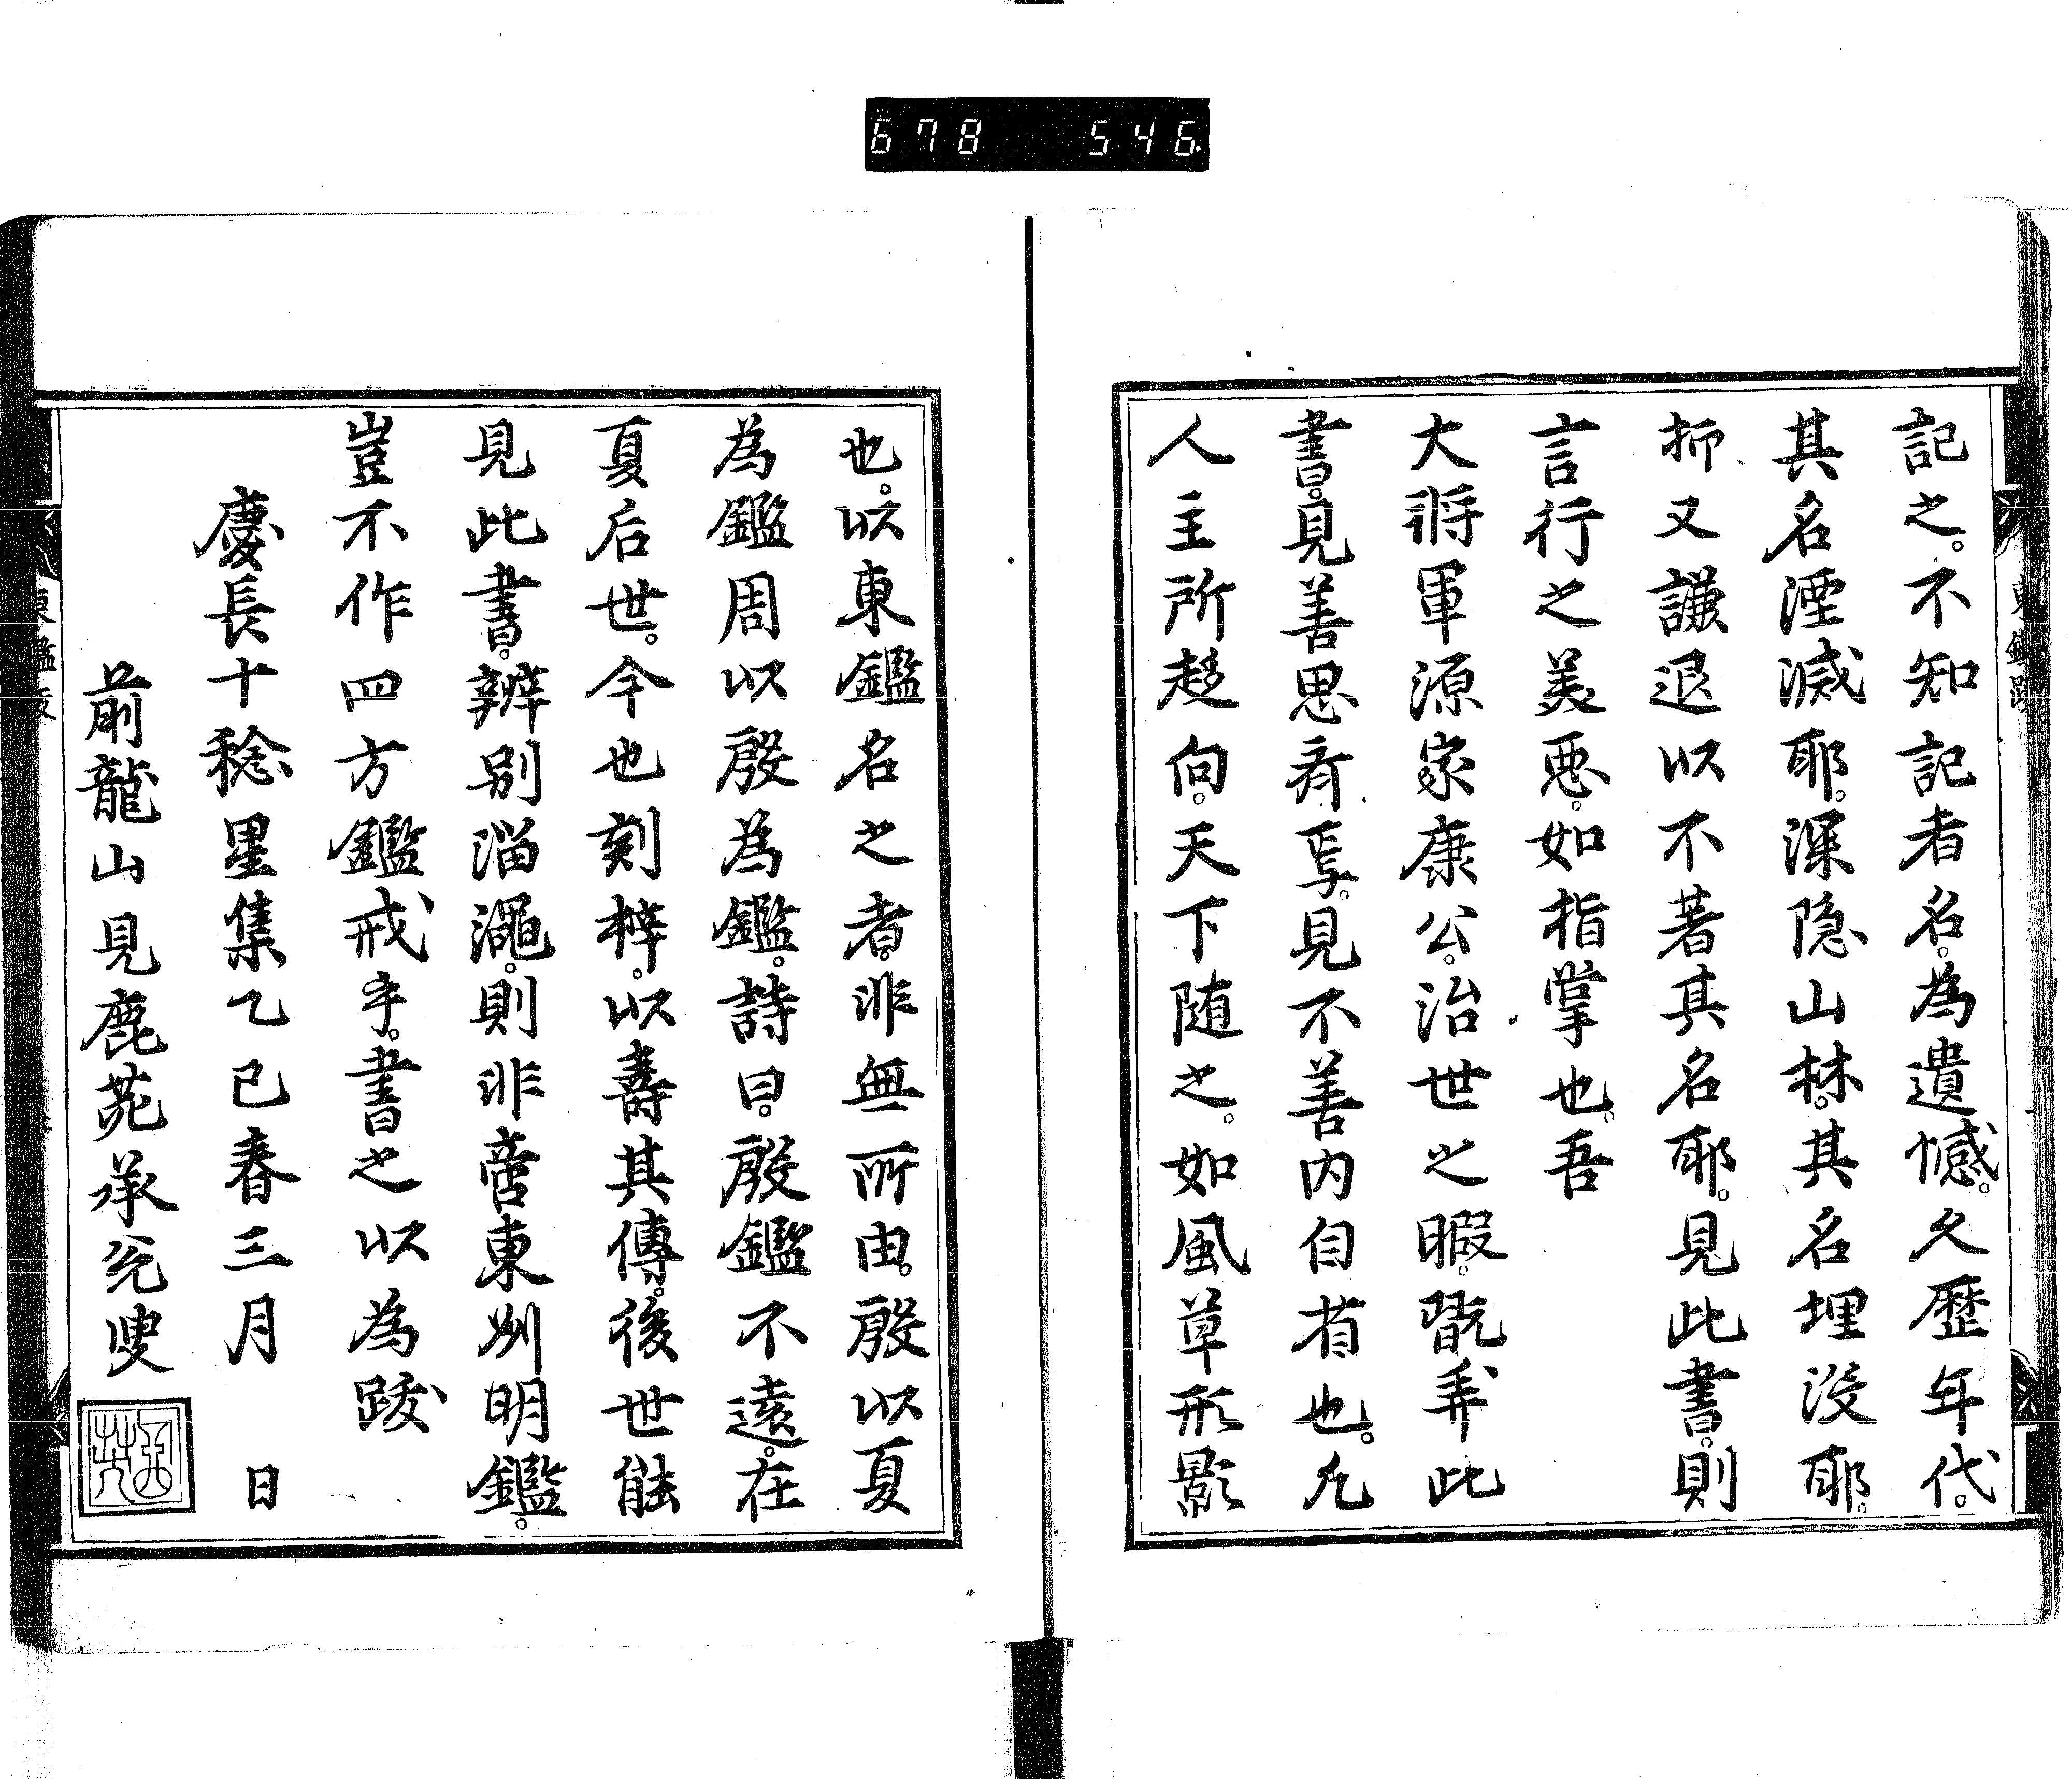 678 546
記之。不知記者名。為遺憾。久歷年代。
其名湮滅耶。深隠山林。其名埋没耶。
抑又謙退以不著其名耶。見此書。則
言行之美悪。如指掌也。吾
大將軍源家康公。治世之暇。翫弄此
書。見善思齊焉。見不善内自省也。凢
人主所趍向。天下随之。如風草形影
也。以東鑑名之者。非無所由。殷以夏
為鑑周以殷為鑑。詩曰。殷鑑不遠。在
夏后世。今也刻梓。以壽其傳。後世能
見此書。辨別淄澠。則非啻東州明鑑。
豈不作四方鑑戒乎。書之以為跋
慶長十稔星集乙巳春三月 日
前龍山見鹿苑承兊叟
東鑑跋